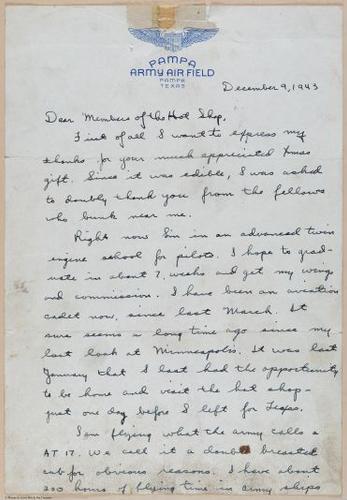 PAMPA
ARMY AIR FIELD
PAMPA
TEXAS
December 9, 1943
Dear Members of the Hot Shop,
First of all I want to express my
thanks for your much appreciated Xmas
gift. Since it was edible, I was asked
to doubly thank you from the fellows
who bunk near me.
Right now I'm in an advanced twin
engine school for pilots. I hope to grad-
uate in about 7 weeks and get my wings
and commission. I have been an aviation
cadet now, since last March. It
sure seems a long time ago since my
last look at Minneapolis. It was last
January that I last had the opportunity
to be home and visit the hot shop -
just one day before I left for Texas.
I am flying what the army calls a
AT 17. We call it a double breasted
cub for obvious reasons. I have about
200 hours of flying time in army ships